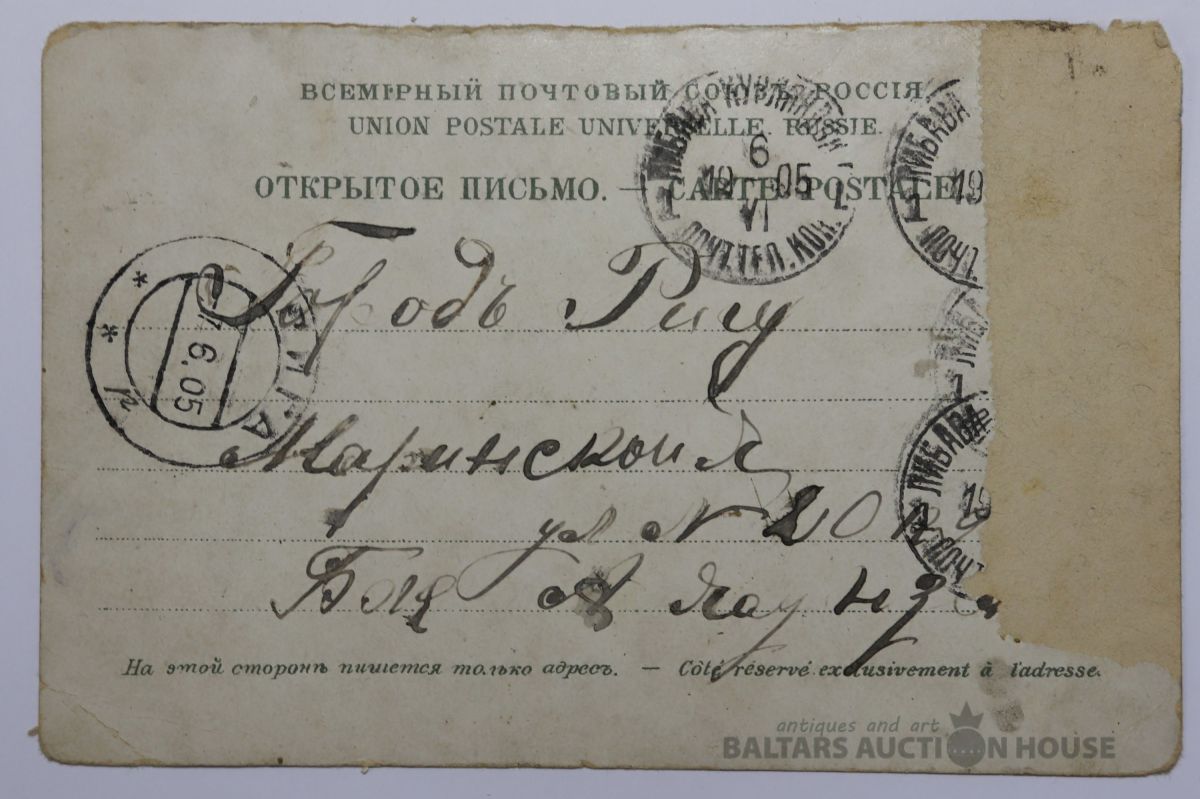 ВСЕМІРНЫЙ ПОЧТОВЫЙ СОЮЗЪ. РОССІЯ
UNION POSTALE UNIVERSELLE. RUSSIE.
ОТКРЫТОЕ ПИСЬМО. — CARTE POSTALE
ЛИБАВА КУРЛЯНДСК.
6
19 05
VI
1 1
ПОЧТ.ТЕЛ.КОН.
ЛИБАВА
1 19
ЛИБАВА
1
ЛИБАВА
1 19
РИГА
6.05
Городъ Ригу
Маринская
ул N 20
На этой сторонѣ пишется только адресъ. — Côté réservé exclusivement à l'adresse.
antiques and art
BALTARS AUCTION HOUSE